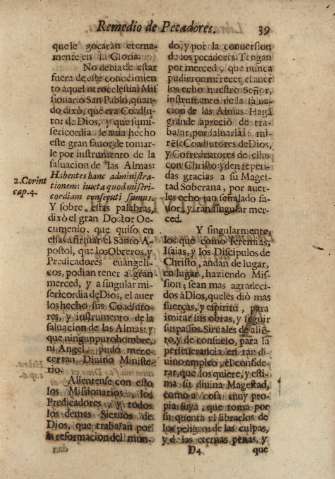 Remedio de Pecadores.
39
que le gozaràn eterna-
mente en la Gloria.
No devia de estar
fuera de este conocimiento
to aquel otro celestial Mis
sionario San Pablo, quan-
do dixo, que era Coadiu-
tor de Dios, y que su mi-
sericordia le avia hecho
este gran favor de tomar-
le por instrumento de la
saluacion de las Almas:
Habentes hanc administra-
tionem: iuxta quod miseri-
cordiam consecuti sumus.
2. Corint
cap. 4.
Y sobre estas palabras,
dixo el gran Doctor Oe-
cumenio, que quiso en
ellas afirmar el Santo A-
postol, que los Obreros, y
Predicadores euangeli-
cos, podian tener a gran
merced, y a singular mi-
sericordia de Dios, el aver
los hecho sus Coadiuto-
res, y instrumento de la
saluacion de las Almas: y
que ningun puro hombre,
ni Angel pudo mere-
cer tan Divino Ministe-
rio.
Alientense con esto
los Missionarios, los
Predicadores, y todos
los demas Siervos de
Dios, que trabajan por
la reformacion del mun-
do, y por la conuersion
de los pecadores: Tengan
por merced, que nunca
pudieron merecer, el aver
les echo nuestro Señor,
instrumento de la salua-
cion de las Almas. Haga
grande aprecio de tra-
bajar, por salvarlas:
Coadiutores de Dios,
y Corredentores de
con Christo: y den repeti-
das gracias a su Mages-
tad Soberana, por aver-
les echo tan señalado fa-
uor, y tan singular mer-
ced.
Y singularmente,
los que como Ieremias,
Isaias, y los Discipulos de
Christo, andan de lugar,
en lugar, haziendo Mis-
sion, sean mas agradeci-
dos a Dios, que les dio mas
fuerças, y espiritu, para
imitar sus obras, y seguir
sus pasos. Sirvales de alie-
to, y de consuelo, para la
perseverancia en tan di-
uino empleo, el conside-
rar, que los quiere, y esti-
ma su diuina Magestad,
como a cosa muy pro-
pia suya, que toma por
su quenta el librarlos de
los peligros de las culpas,
y de las eternas penas, y
D4.
que